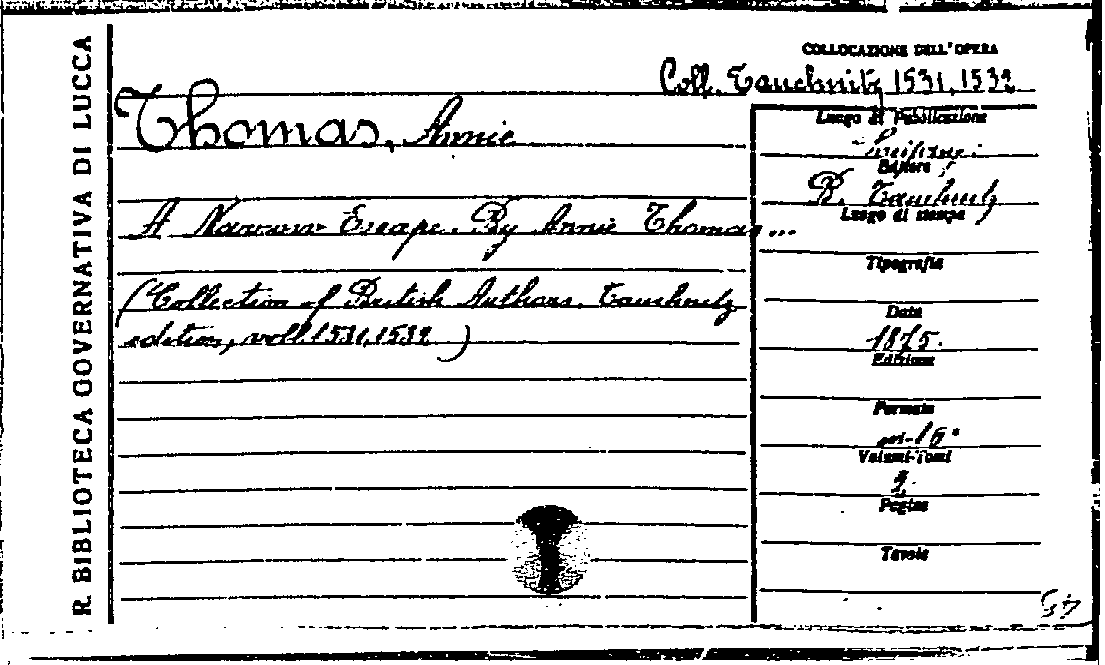 R. BIBLIOTECA GOVERNATIVA DI LUCCA
COLLOCAZIONE DELL'OPERA
Coll. Tauchnitz 1531, 1532
Thomas, Annie
A Narrow Escape. By Annie Thomas...
(Collection of British Authors. Tauchnitz
edition, voll. 1531, 1532)
Luogo di Pubblicazione
Leipzig
Editore
B. Tauchnitz
Luogo di stampa
Tipografia
Data
1875.
Edizione
Formato
in-16°
Volumi-Tomi
2.
Pagine
Tavole